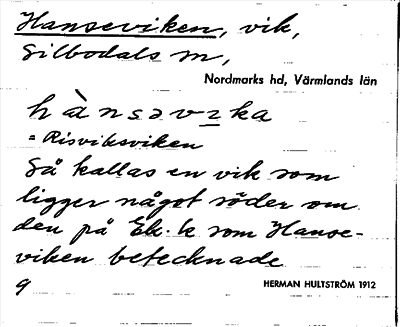 Hanseviken, vik,
Silbodals sn,
Nordmarks hd, Värmlands län
hànsəvika
= Risviksviken
Så kallas en vik som
ligger något söder om
den på Ek. k som Hanse-
viken betecknade
9
HERMAN HULTSTRÖM 1912